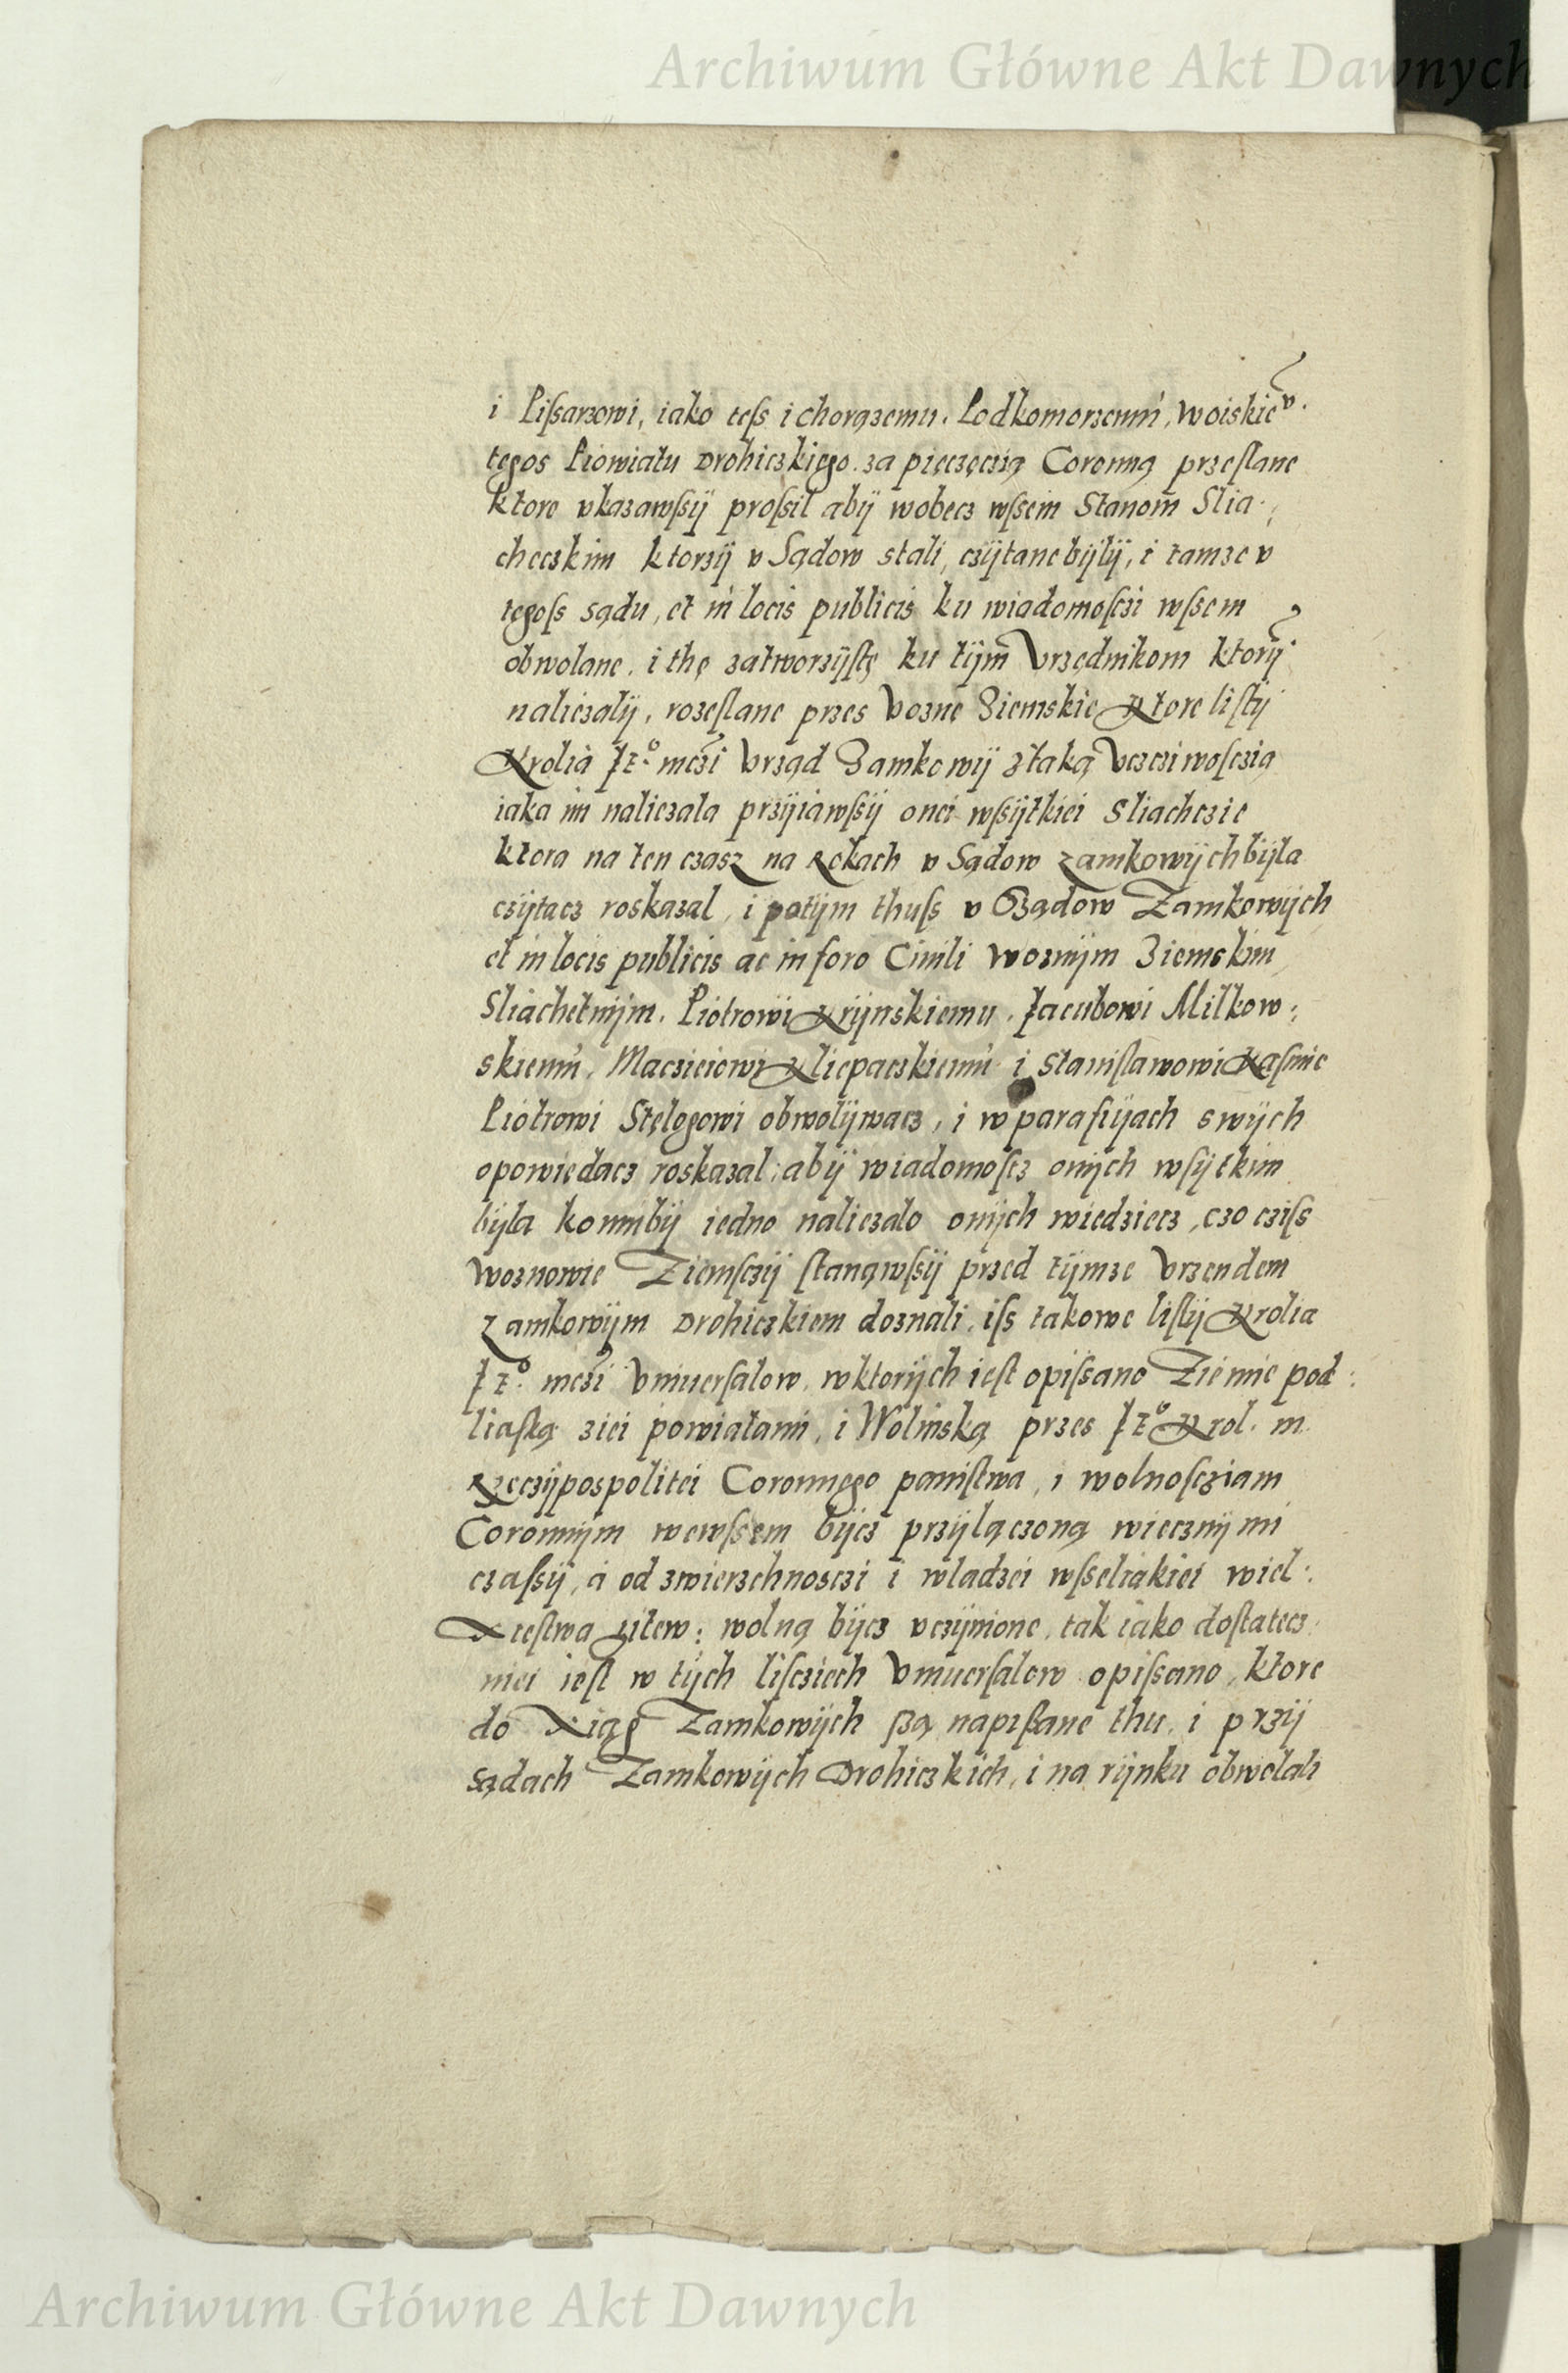 Archiwum Główne Akt Dawnych
i Piſsarzowi, iako teſs i chorązemu. Podkomorzemu, Woiskieᵛ.
tegos Powiatu Drohiczkiego. za pięczęczią Coronną przeſlane
ktore vkazawſsÿ proſsil abÿ wobecz wſsem Stanom̃ Slia:
checzkim ktorzÿ v Sądow stali, czÿtane bÿlÿ, i tamze v
tegoſs sądu, et in locis publicis ku wiadomoſczi wſsem
obwolane. i thę zatworzÿſtę ku tÿm̃ Vrzędnikom ktorÿ
naliezalÿ, rozeſlane przes Vozne Ziemskie Ktore liſtÿ
Krolia Jᵉ.º mczi Vrząd Zamkowÿ z taką Vcziwoſczią
iaka im naliezala przÿiawſsÿ onei wſsÿtkiei Sliachczie
ktora na ten czasz na Rokach v Sądow zamkowÿch bÿla
czÿtacz roskazal, i potÿm thuſs v Sządow Zamkowÿch
et in locis publicis ac in foro Ciuili woznÿm Ziemskim
Sliachetnÿm. Piotrowi Krÿnskiemu. Jacubowi Milkow:
skiemu, Maczieiowi Kliepaczkiemu i Staniſlawowi Kaſmie
Piotrowi Stęlogowi obwolÿwacz, i w parafiÿach swÿch
opowiedacz roskazal: abÿ wiadomoſcz onÿch wſsÿtkim
bÿla komubÿ iedno naliezalo onÿch wiedziecz, czo cziſs
woznowie Ziemſczÿ ſtanąwſsÿ przed tÿmze Vrzendem
Zamkowÿm Drohiczkiem doznali. iſs takowe liſtÿ Krolia
Jᵉ.º mczi Vniuerſalow. w ktorÿch ieſt opiſsano Ziemie pod:
liaſką ziei powiatami, i Wolinską przes Jᵉº Krol. m.
Rzeczÿpospolitei Coronnęgo paniſtwa, i wolnoſcziam
Coronnÿm wewſsem bÿcz przÿlączoną wiecznÿmi
czaſsÿ, a od zwierzchnosczi i wladzei wſseliakiei wiel:
Xieſtwa Litew: wolną bÿcz vczÿnione. tak iako doſtatecz:
niei ieſt w tÿch liſcziech Vniuerſalow opiſsano, ktore
do Xiąg Zamkowÿch ſzą napiſsane thu. i przÿ
sądach Zamkowÿch Drohiczkich, i na rÿnku obwolali
Archiwum Główne Akt Dawnych